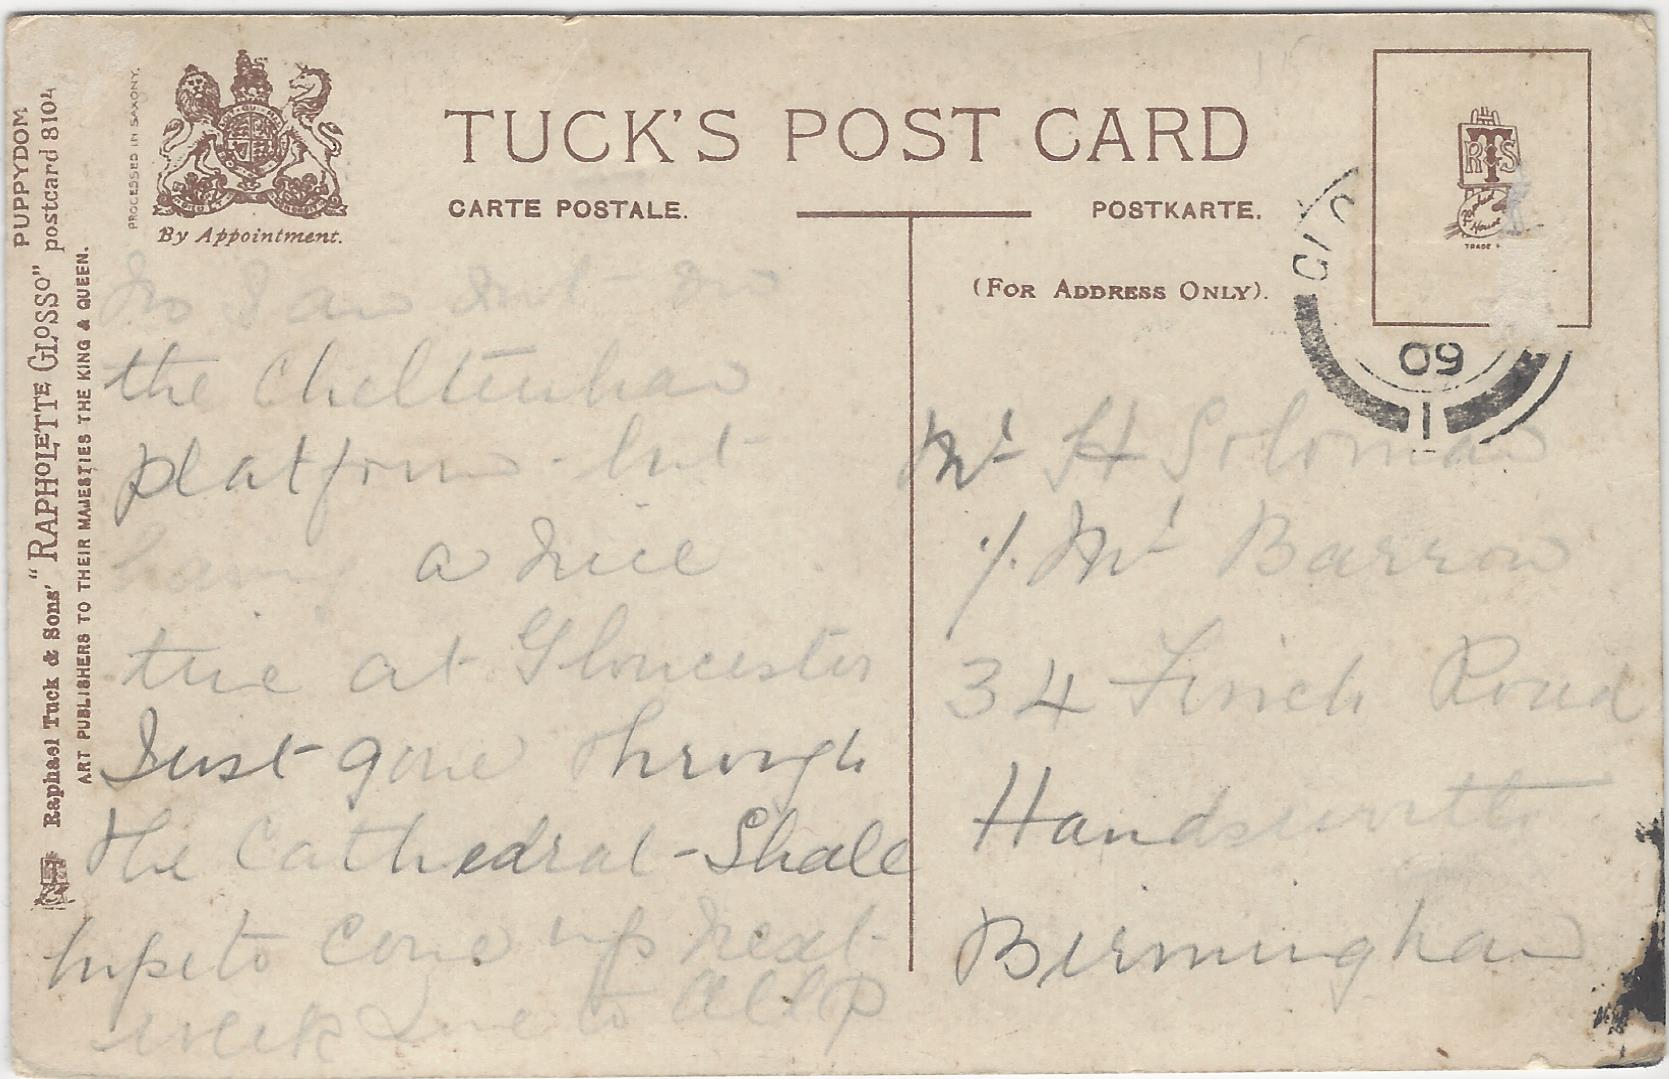 PUPPYDOM
Raphael Tuck & Sons' "RAPHOLETTE GLOSSO" postcard 8104
ART PUBLISHERS TO THEIR MAJESTIES THE KING & QUEEN.
PROCESSED IN SAXONY.
By Appointment.
TUCK'S POST CARD
CARTE POSTALE.
POSTKARTE.
(FOR ADDRESS ONLY).
RTS
Raphael House
TRADE
GLO
09
1
No I am not on
the Cheltenham
platform - but
having a nice
time at Gloucester
Just gone through
the Cathedral - Shall
hope to come up next
week Love to all P
Mr H Solomon
% Mr Barrow
34 Finch Road
Handsworth
Birmingham